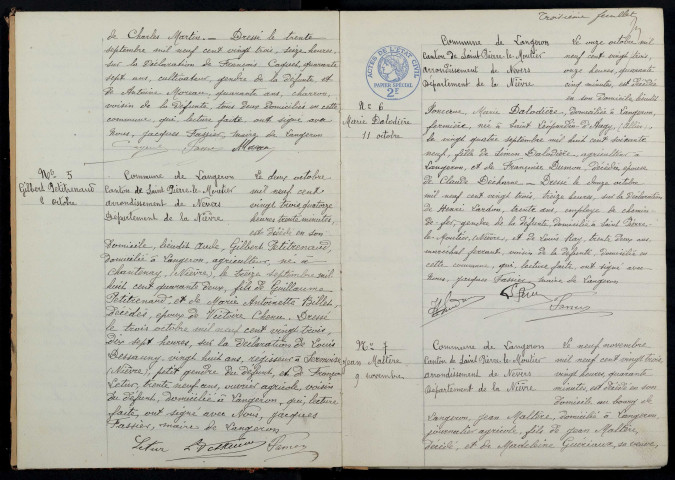 de Charles Martin. — Dressé le trente
septembre mil neuf cent vingt trois, seize heures,
sur la déclaration de François Caquet, quarante
sept ans, cultivateur, gendre de la défunte et
de Antoine Moreau, quarante ans, charron,
voisin de la défunte, tous deux domiciliés en cette
commune, qui, lecture faite ont signé avec
Nous, Jacques Fassier, maire de Langeron
No 5
Gilbert Petitrenaud
2 octobre
Commune de Langeron
Canton de Saint-Pierre-le-Moutier
arrondissement de Nevers
Département de la Nièvre
Le deux octobre
mil neuf cent
vingt trois quatorze
heures trente minutes,
est décédé en son
domicile, lieudit Aubé, Gilbert Petitrenaud
domicilié à Langeron, agriculteur, né à
Chantenay (Nièvre), le treize septembre mil
huit cent quarante deux, fils de Guillaume
Petitrenaud, et de Marie Antoinette Billet,
décédés, époux de Victoire Chenu. Dressé
le trois octobre mil neuf cent vingt trois,
dix sept heures, sur la déclaration de Louis
vingt huit ans, régisseur à
(Nièvre), petit gendre du défunt, et de François
Letur, trente neuf ans, ouvrier agricole, voisin
du défunt, domicilié à Langeron, qui, lecture
faite, ont signé avec Nous, Jacques
Fassier, maire de Langeron
Letur
Troisième feuillet
ACTES DE L'ETAT CIVIL
PAPIER SPECIAL
2F
No 6
Marie Dalodière
11 octobre
Commune de Langeron
Canton de Saint-Pierre-le-Moutier
arrondissement de Nevers
Département de la Nièvre
Le onze octobre mil
neuf cent vingt trois,
onze heures, quarante
cinq minutes, est décédée
en son domicile,
Marie Dalodière, domiciliée à Langeron,
fermière, née à Saint Léopardin d'Augy (Allier),
le vingt quatre septembre mil huit cent soixante
neuf, fille de Simon Dalodière, agriculteur à
Langeron, et de Françoise décédée épouse
de Claude Dechaume. — Dressé le douze octobre
mil neuf cent vingt trois, treize heures, sur la déclaration
de Henri Lardon, trente ans, employé de chemin
de fer, gendre de la défunte, domicilié à Saint-Pierre-
le-Moutier (Nièvre), et de Louis Ray, trente deux ans,
maréchal ferrant, voisin de la défunte, domicilié en
cette commune, qui, lecture faite, ont signé avec
Nous, Jacques Fassier, maire de Langeron
No 7
Jean Mallère
9 novembre
Commune de Langeron
Canton de Saint-Pierre-le-Moutier
arrondissement de Nevers
Département de la Nièvre
Le neuf novembre
mil neuf cent vingt trois,
vingt heures quarante
minutes, est décédé en son
domicile au bourg de
Langeron, Jean Mallère, domicilié à Langeron
journalier agricole, fils de Jean Mallère,
décédé, et de Madeleine sa veuve,